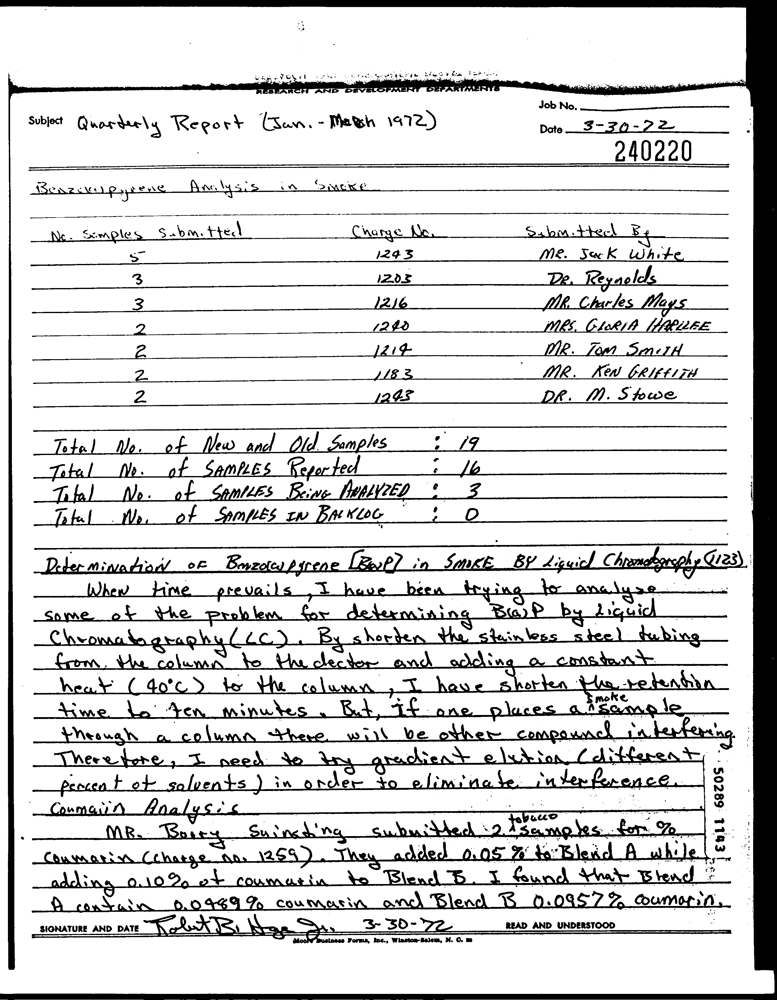 RESEARCH AND DEVELOPMENT DEPARTMENTS
Job No.
Subject Quarterly Report (Jan. - March 1972)
Date 3-30-72
240220
Benzo(a)pyrene Analysis in Smoke
No. Samples Submitted Charge No. Submitted By
5 1243 MR. Jack White
3 1203 DR. Reynolds
3 1216 MR. Charles Mays
2 1240 MRS. GLORIA HARLLEE
2 1214 MR. TOM SMITH
2 1183 MR. KEN GRIFFITH
2 1243 DR. M. Stowe
Total No. of New and Old Samples : 19
Total No. of SAMPLES Reported : 16
Total No. of SAMPLES BEING ANALYZED : 3
Total No. of SAMPLES IN BACKLOG : 0
Determination OF Benzo(a)pyrene [B(a)P] in SMOKE BY Liquid Chromatography (1123)
When time prevails, I have been trying to analyse
some of the problem for determining B(a)P by Liquid
Chromatography (LC). By shorten the stainless steel tubing
from the column to the dector and adding a constant
heat (40°C) to the column, I have shorten the retention
time to ten minutes. But, if one places a smoke sample
through a column there will be other compound interfering.
Therefore, I need to try gradient elution (different
percent of solvents) in order to eliminate interference.
Coumarin Analysis
MR. submitted 2 tobacco samples for %
coumarin (charge no. 1259). They added 0.05% to Blend A while
adding 0.10% of coumarin to Blend B. I found that Blend
A contain 0.0489% coumarin and Blend B 0.0957% coumarin.
SIGNATURE AND DATE Robert B. Jr. 3-30-72 READ AND UNDERSTOOD
Moore Business Forms, Inc., Winston-Salem, N. C.
50289 1143